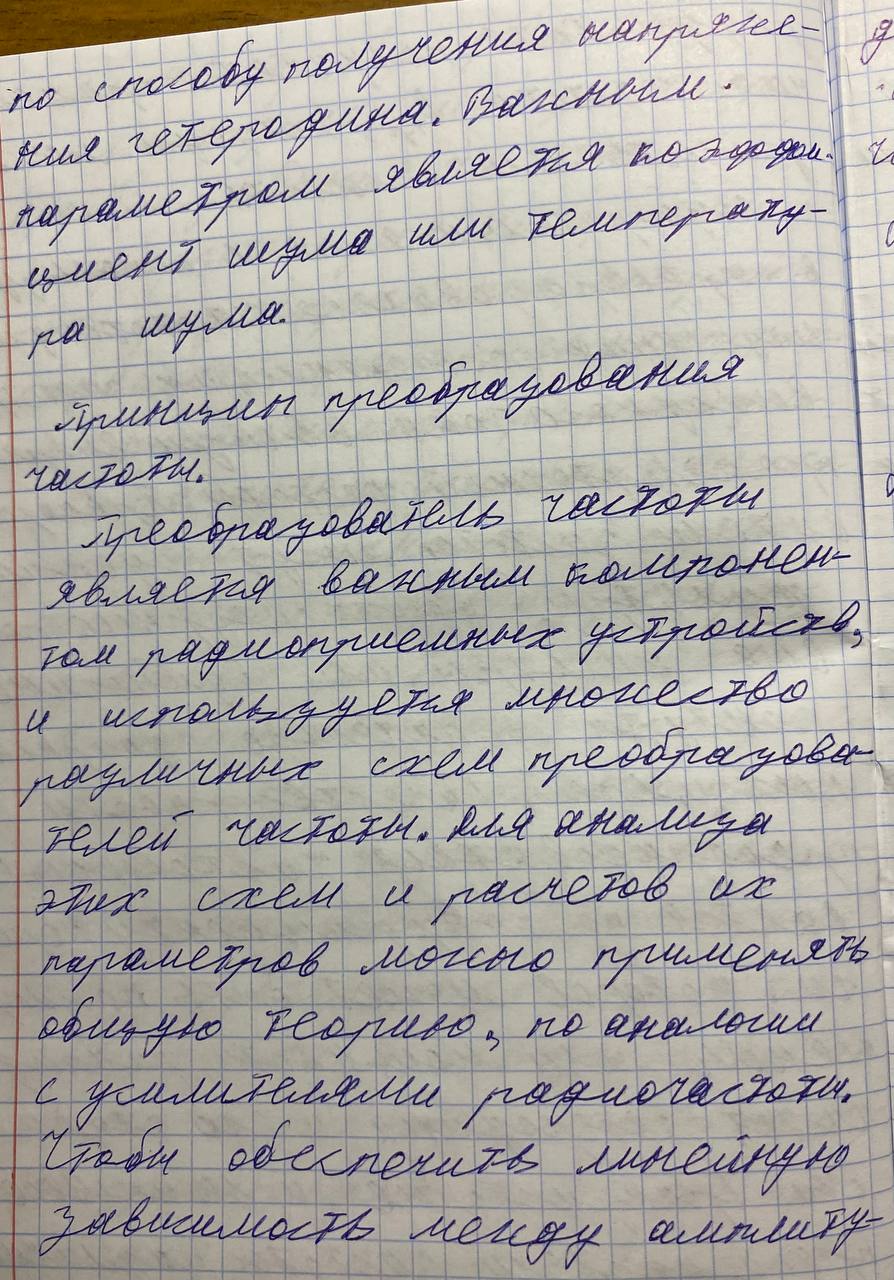 по способу получения напряже-
ния гетеродина. Важным
параметром является коэффи-
циент шума или температу-
ра шума.
Принцип преобразования
частоты.
Преобразователь частоты
является важным компонен-
том радиоприемных устройств,
и используется множество
различных схем преобразова-
телей частоты. Для анализа
этих схем и расчетов их
параметров можно применять
общую теорию, по аналогии
с усилителями радиочастоты.
Чтобы обеспечить линейную
зависимость между амплиту-